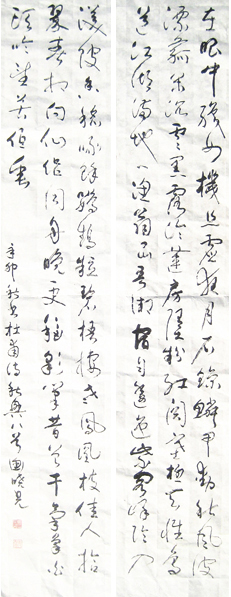 在眼中織女機絲虛夜月石鯨鱗甲動秋風波
漂菰米沉雲黑露冷蓮房墜粉紅關塞極天惟鳥
道江湖滿地一漁翁昆吾御宿自逶迤紫閣峰陰入
渼陂香稻啄餘鸚鵡粒碧梧棲老鳳凰枝佳人拾
翠春相問仙侶同舟晚更移彩筆昔曾干氣象白
頭吟望苦低垂
辛卯秋書杜甫詩秋興八首